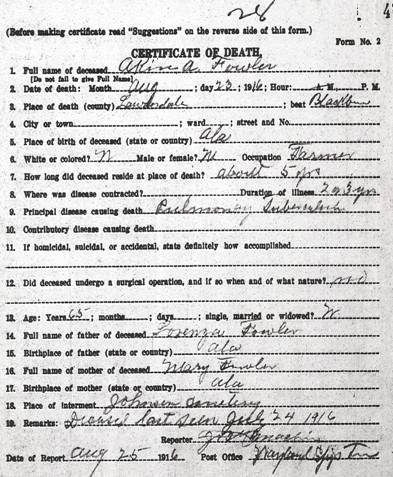 28
4
(Before making certificate read "Suggestions" on the reverse side of this form.)
Form No. 2
CERTIFICATE OF DEATH,
1. Full name of deceased Akin A. Fowler
[Do not fail to give Full Name]
2. Date of death: Month Aug ; day 23, 1916; Hour: A M P. M.
3. Place of death (county) Lauderdale ; beat Blackburn
4. City or town ; ward ; street and No.
5. Place of birth of deceased (state or country) Ala
6. White or colored? W Male or female? M Occupation Farmer
7. How long did deceased reside at place of death? about 5 yrs
8. Where was disease contracted? Duration of illness 2 or 3 yrs
9. Principal disease causing death Pulmonary Tuberculosis
10. Contributory disease causing death
11. If homicidal, suicidal, or accidental, state definitely how accomplished
12. Did deceased undergo a surgical operation, and if so when and of what nature? no
13. Age: Years 65 ; months ; days ; single, married or widowed? W
14. Full name of father of deceased Lorenza Fowler
15. Birthplace of father (state or country) Ala
16. Full name of mother of deceased Mary Fowler
17. Birthplace of mother (state or country) Ala
18. Place of interment Johnson Cemetery
19. Remarks: last seen July 24 1916
Reporter
Date of Report Aug 25 1916 Post Office